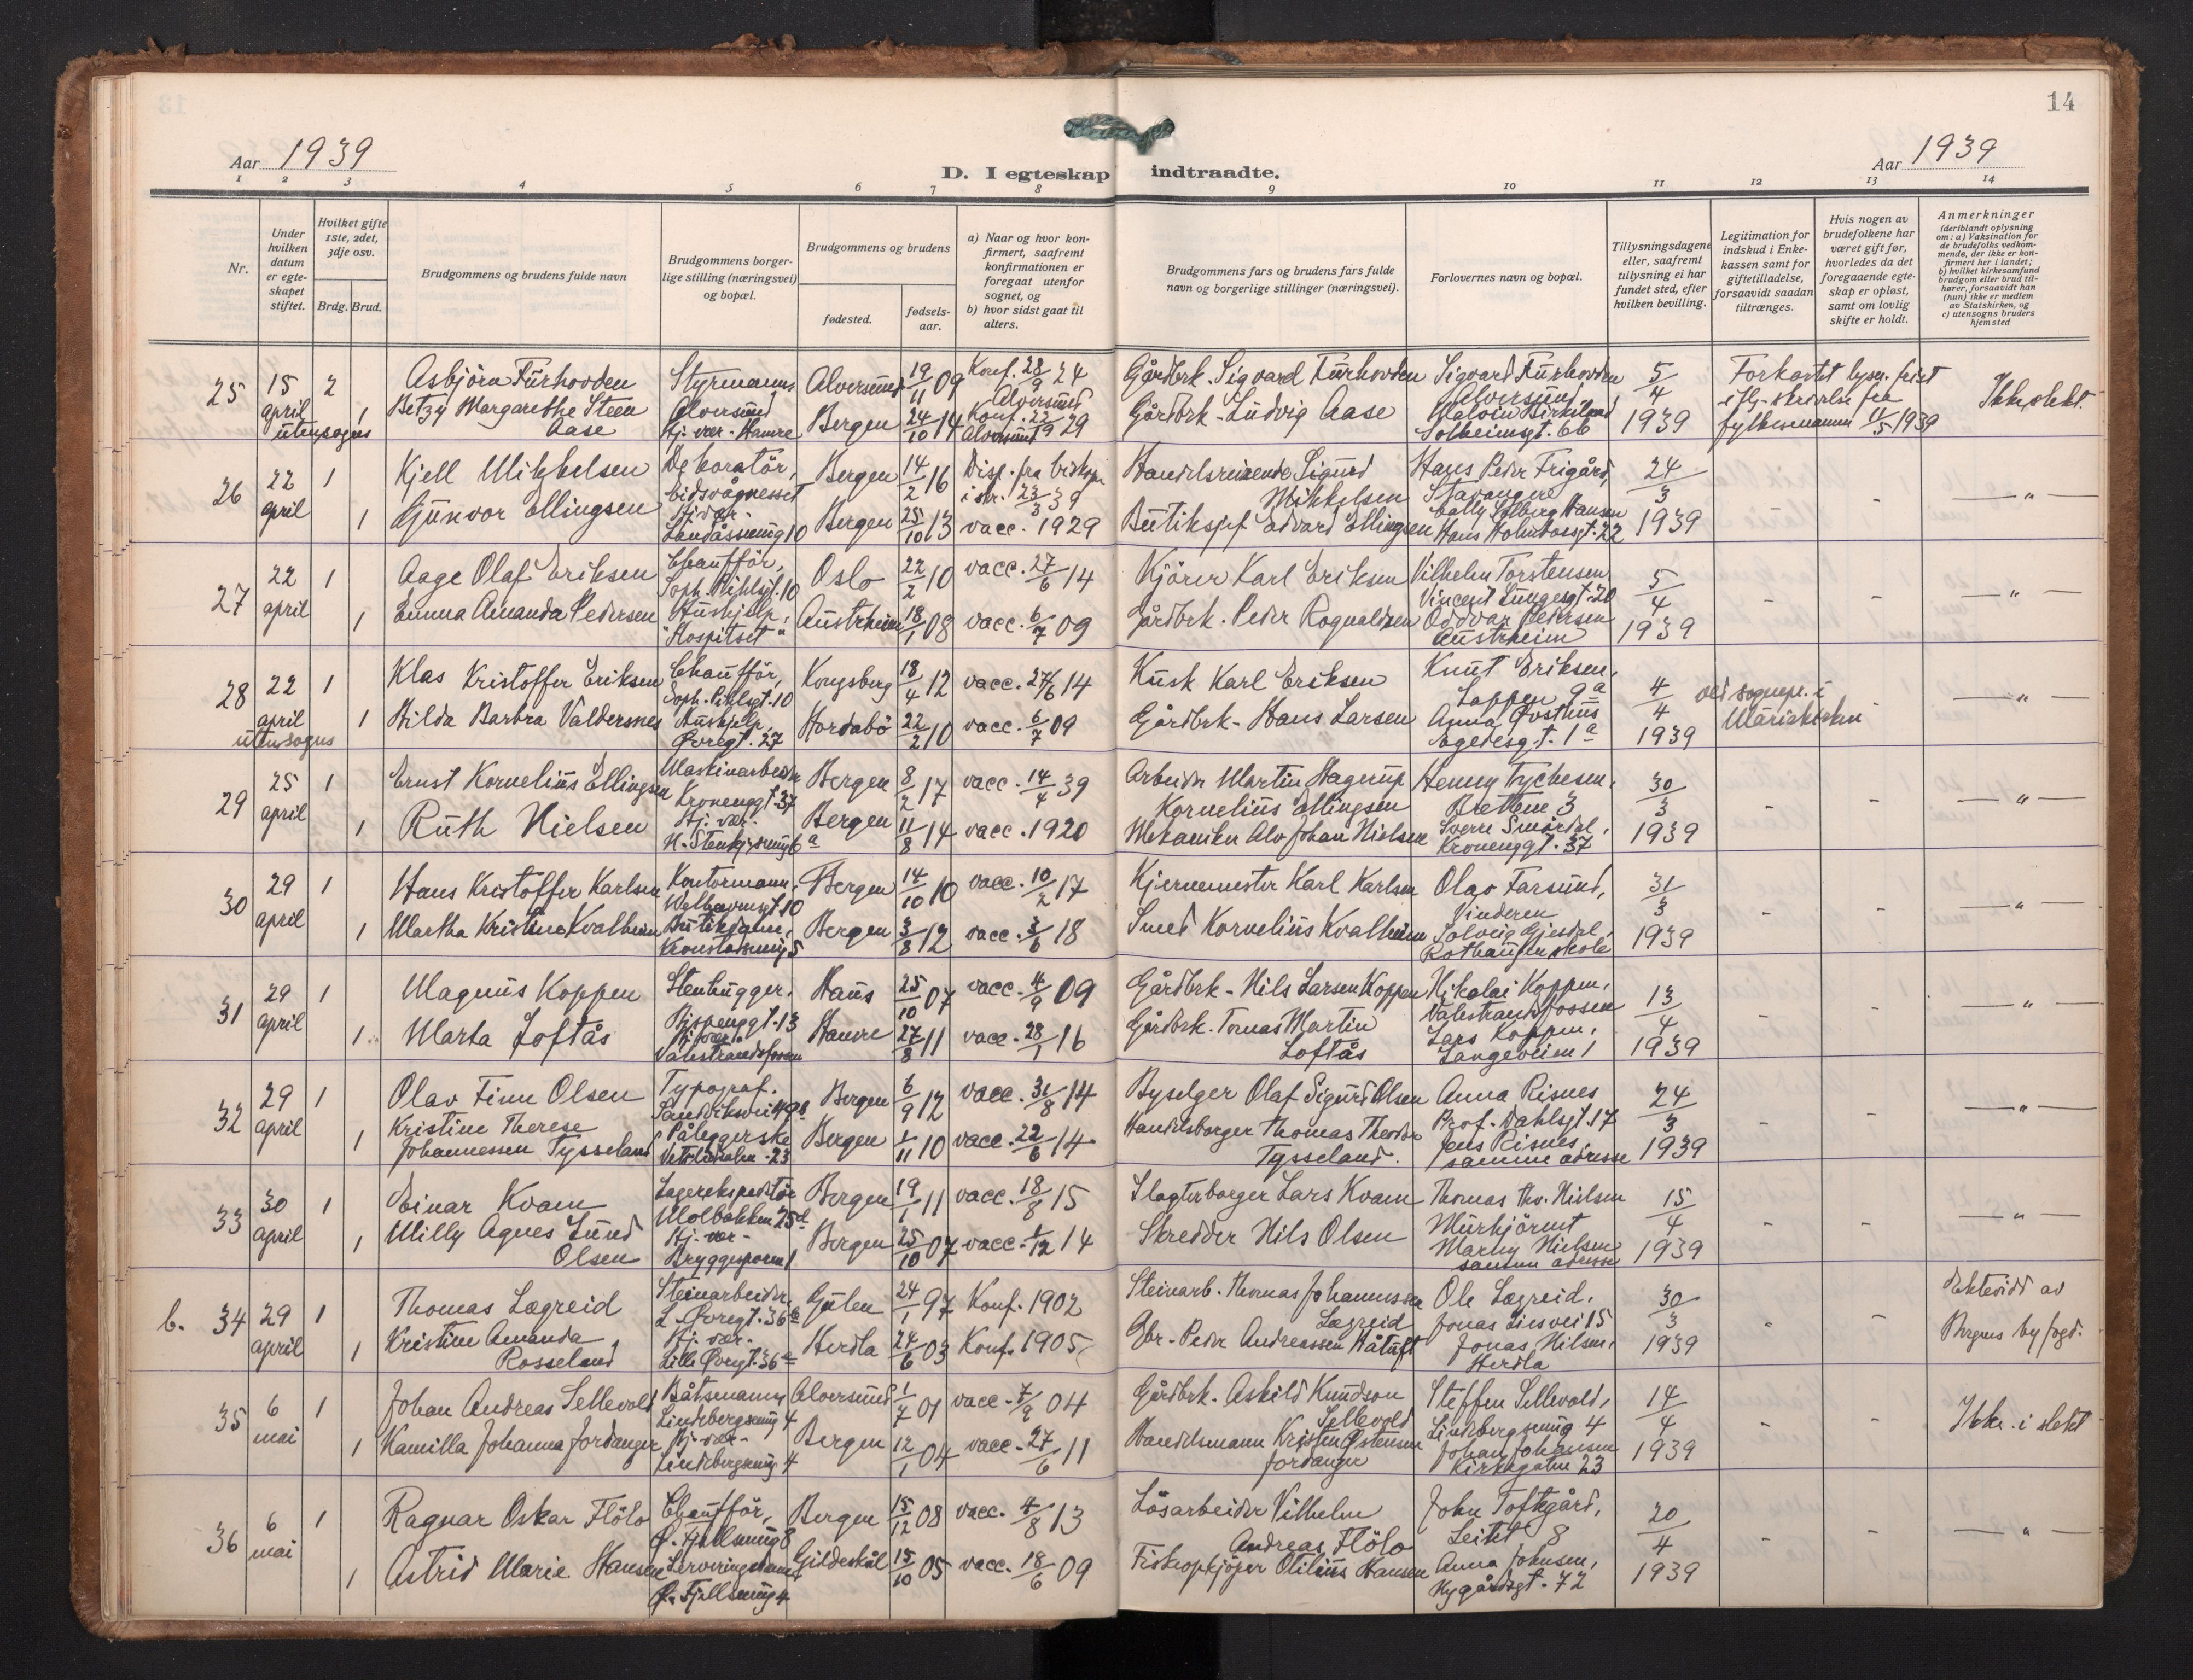 14
Aar 1939
D. I egteskap indtraadte.
Aar 1939
1 2 3 4 5 6 7 8 9 10 11 12 13 14
Nr.
Under hvilken datum er egteskapet stiftet.
Hvilket gifte 1ste, 2det, 3dje osv.
Brdg. Brud.
Brudgommens og brudens fulde navn
Brudgommens borgerlige stilling (næringsvei) og bopæl.
Brudgommens og brudens
fødested.
fødselsaar.
a) Naar og hvor konfirmert, saafremt konfirmationen er foregaat utenfor sognet, og
b) hvor sidst gaat til alters.
Brudgommens fars og brudens fars fulde navn og borgerlige stillinger (næringsvei).
Forlovernes navn og bopæl.
Tillysningsdagene eller, saafremt tillysning ei har fundet sted, efter hvilken bevilling.
Legitimation for indskud i Enkekassen samt for giftetilladelse, forsaavidt saadan tiltrænges.
Hvis nogen av brudefolkene har været gift før, hvorledes da det foregaaende egteskap er opløst, samt om lovlig skifte er holdt.
Anmerkninger (deriblandt oplysning om: a) Vaksination for de brudefolks vedkommende, der ikke er konfirmert her i landet; b) hvilket kirkesamfund brudgom eller brud tilhører, forsaavidt han (hun) ikke er medlem av Statskirken, og c) utensogns bruders hjemsted
25 15 april utensogns 2 Asbjörn Furhovden Styrmann, Alversund Alversund 19/11 09 Konf. 28/9 24 Alversund Gårdbrk. Sigvard Furhovden Sigvard Furhovden Alversund 5/4 1939 Forkortet lysn. frist
1 Betzy Margarethe Steen Aase Hj. vær. Hamre Bergen 24/10 14 Konf. 22/9 29 Alversund Gårdbrk. Ludvig Aase Birkeland Solheimsgt. 66 fylkesmannen 11/5 1939 Ikke slekt.
26 22 april 1 Kjell Mikkelsen Dekoratör, Eidsvågnesset Bergen 14/2 16 Disp. fra biskopen i skr. 23/3 39 Handelsreisende Sigurd Mikkelsen Hans Peder Frigård, Stavanger 24/3 1939 - - "
1 Gunvor Ellingsen Hj. vær. Landåsveien 10 Bergen 25/10 13 vacc. 1929 Butiksjef Edvard Ellingsen Solberg Hansen Hans Holmboesgt. 22
27 22 april 1 Aage Olaf Eriksen Chaufför, Soph. Pihlsgt. 10 Oslo 22/2 10 vacc. 27/6 14 Kjörer Karl Eriksen Vilhelm Torstensen Vincent Lungesgt. 20 5/4 1939 - - "
1 Emma Amanda Pedersen Hushjelp, "Hospitset" Austrheim 18/1 08 vacc. 6/7 09 Gårdbrk. Peder Rognaldsen Oddvar Pedersen Austrheim
28 22 april utensogns 1 Klas Kristoffer Eriksen Chaufför, Soph. Pihlsgt. 10 Kongsberg 18/4 12 vacc. 27/6 14 Kusk Karl Eriksen Knut Eriksen, Loppen 9a 4/4 1939 ved sognepr. i Mariakirken - "
1 Hilda Barbra Valdersnes Hushjelp, Øvregt. 27 Hordabö 22/2 10 vacc. 6/7 09 Gårdbrk. Hans Larsen Anna Østhus Egedesgt. 1a
29 25 april 1 Ernst Kornelius Ellingsen Maskinarbeider Kroneggt. 37 Bergen 8/2 17 vacc. 14/4 39 Arbeider Martin Hagerup Kornelius Ellingsen Henny Tychesen, Brettene 3 30/3 1939 - - "
1 Ruth Nielsen Hj. vær. Bergen 11/8 14 vacc. 1920 Mekaniker Alv Johan Nielsen Sverre Smördal, Kroneggt. 37
30 29 april 1 Hans Kristoffer Karlsen Kontormann, Welhavensgt. 10 Bergen 14/10 10 vacc. 10/2 17 Kjernemester Karl Karlsen Olav Farsund, Vinderen 31/3 1939 - - "
1 Martha Kristine Kvalheim Butikdame, 5 Bergen 3/8 12 vacc. 3/6 18 Smed Kornelius Kvalheim Solveig Gjesdal, Rothaugen skole
31 29 april 1 Magnus Koppen Stenhugger, Bispenggt. 13 Haus 25/10 07 vacc. 4/9 09 Gårdbrk. Nils Larsen Koppen Nikolai Koppen, Valestrandsfossen 13/4 1939 - - "
1 Marta Loftås Hj. vær. Valestrandsfossen Hamre 27/8 11 vacc. 28/1 16 Gårdbrk. Tomas Martin Loftås Lars Koppen, Langeveien 1
32 29 april 1 Olav Finn Olsen Typograf. Sandviksvei 49 Bergen 6/9 12 vacc. 31/8 14 Byselger Olaf Sigurd Olsen Anna Risnes Prof. Dahlsgt. 17 24/3 1939 - - "
1 Kristine Therese Johannessen Tysseland Påleggerske 23 Bergen 1/11 10 vacc. 22/6 14 Handelsborger Thomas Theodor Tysseland. Jens Risnes, samme adresse
33 30 april 1 Einar Kvam Lagerekspeditör Molbakken 25d Bergen 19/1 11 vacc. 18/8 15 Slagterborger Lars Kvam Thomas Th. Nielsen Murhjörnet 15/4 1939 - - "
1 Milly Agnes Lund Olsen Hj. vær. Bryggesporen 1 Bergen 25/10 07 vacc. 1/12 14 Skredder Nils Olsen Marny Nielsen samme adresse
b. 34 29 april 1 Thomas Lægreid Steinarbeider, L. Øvregt. 36a Gulen 24/1 97 Konf. 1902 Steinarb. Thomas Johannessen Lægreid Ole Lægreid, Jonas Liesvei 15 30/3 1939 - - Ektevidd av Bergens byfogd.
1 Kristine Amanda Rosseland Hj. vær. Lille Øvregt. 36a Herdla 24/6 03 Konf. 1905 Gbr. Peder Andreassen Håtuft Jonas Nilsen, Herdla
35 6 mai 1 Johan Andreas Sellevold Båtsmann, Lindebergsveien 4 Alversund 1/7 01 vacc. 7/9 04 Gårdbrk. Askild Knudson Sellevold Steffen Sellevold, Lindebergsveien 4 14/4 1939 - - Ikke i slekt
1 Kamilla Johanna Jordanger Hj. vær. Lindebergsveien 4 Bergen 12/1 04 vacc. 27/6 11 Handelsmann Kristen Østensen Jordanger Johan Johansen Kirkegaten 23
36 6 mai 1 Ragnar Oskar Flölo Chaufför, Ø. Fjellsmug 8 Bergen 15/12 08 vacc. 4/8 13 Lösarbeider Vilhelm Andreas Flölo John Toftegård, Leitet 8 20/4 1939 - - "
1 Astrid Marie Hansen Serveringsdame Ø. Fjellsmug 4 Gildeskål 15/10 05 vacc. 18/6 09 Fiskeopkjöper Otilius Hansen Anna Johnsen, Nygårdsgt. 72